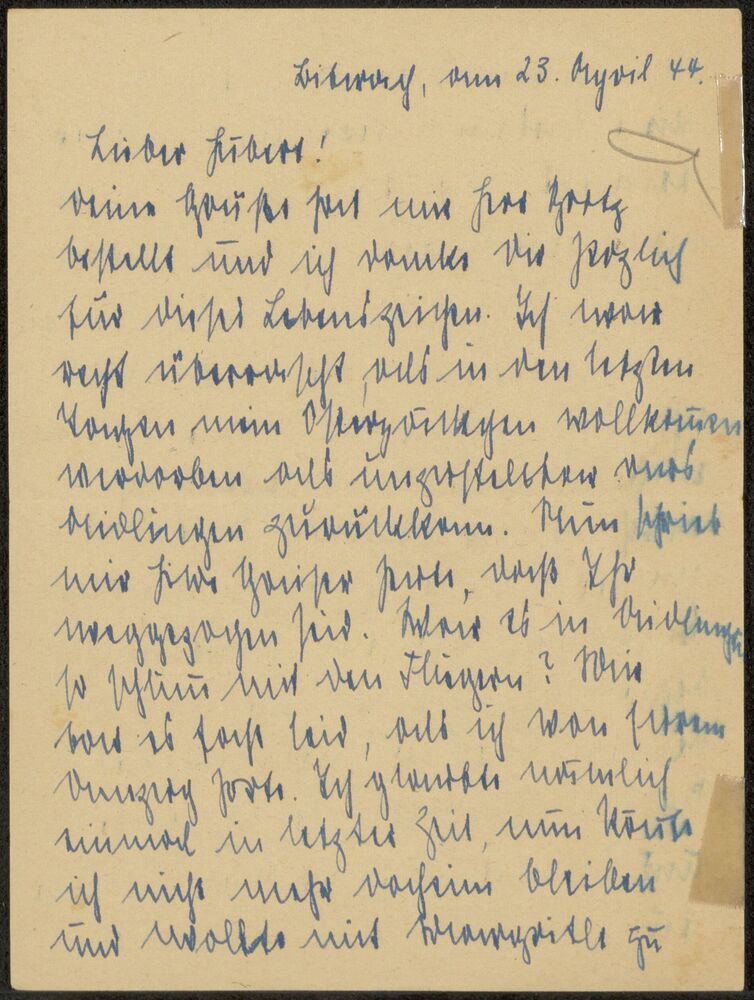 Biberach, am 23. April 44.
Lieber Hubert!
Deine Grüße hat mir Herr
bestellt und ich danke Dir herzlich
für dieses Lebenszeichen. Ich war
recht überrascht, als in den letzten
Tagen mein Osterpäckchen vollkommen
verdorben als unzustellbar aus
Aidlingen zurückkam. Nun schrieb
mir heute, daß Ihr
weggezogen seid. War es in Aidlingen
so schlimm mit den Fliegern? Mir
tat es fast leid, als ich von Eurem
Umzug hörte. Ich glaubte nämlich
einmal in letzter Zeit, nun könnte
ich nicht mehr daheim bleiben
und wollte mit Margritle zu